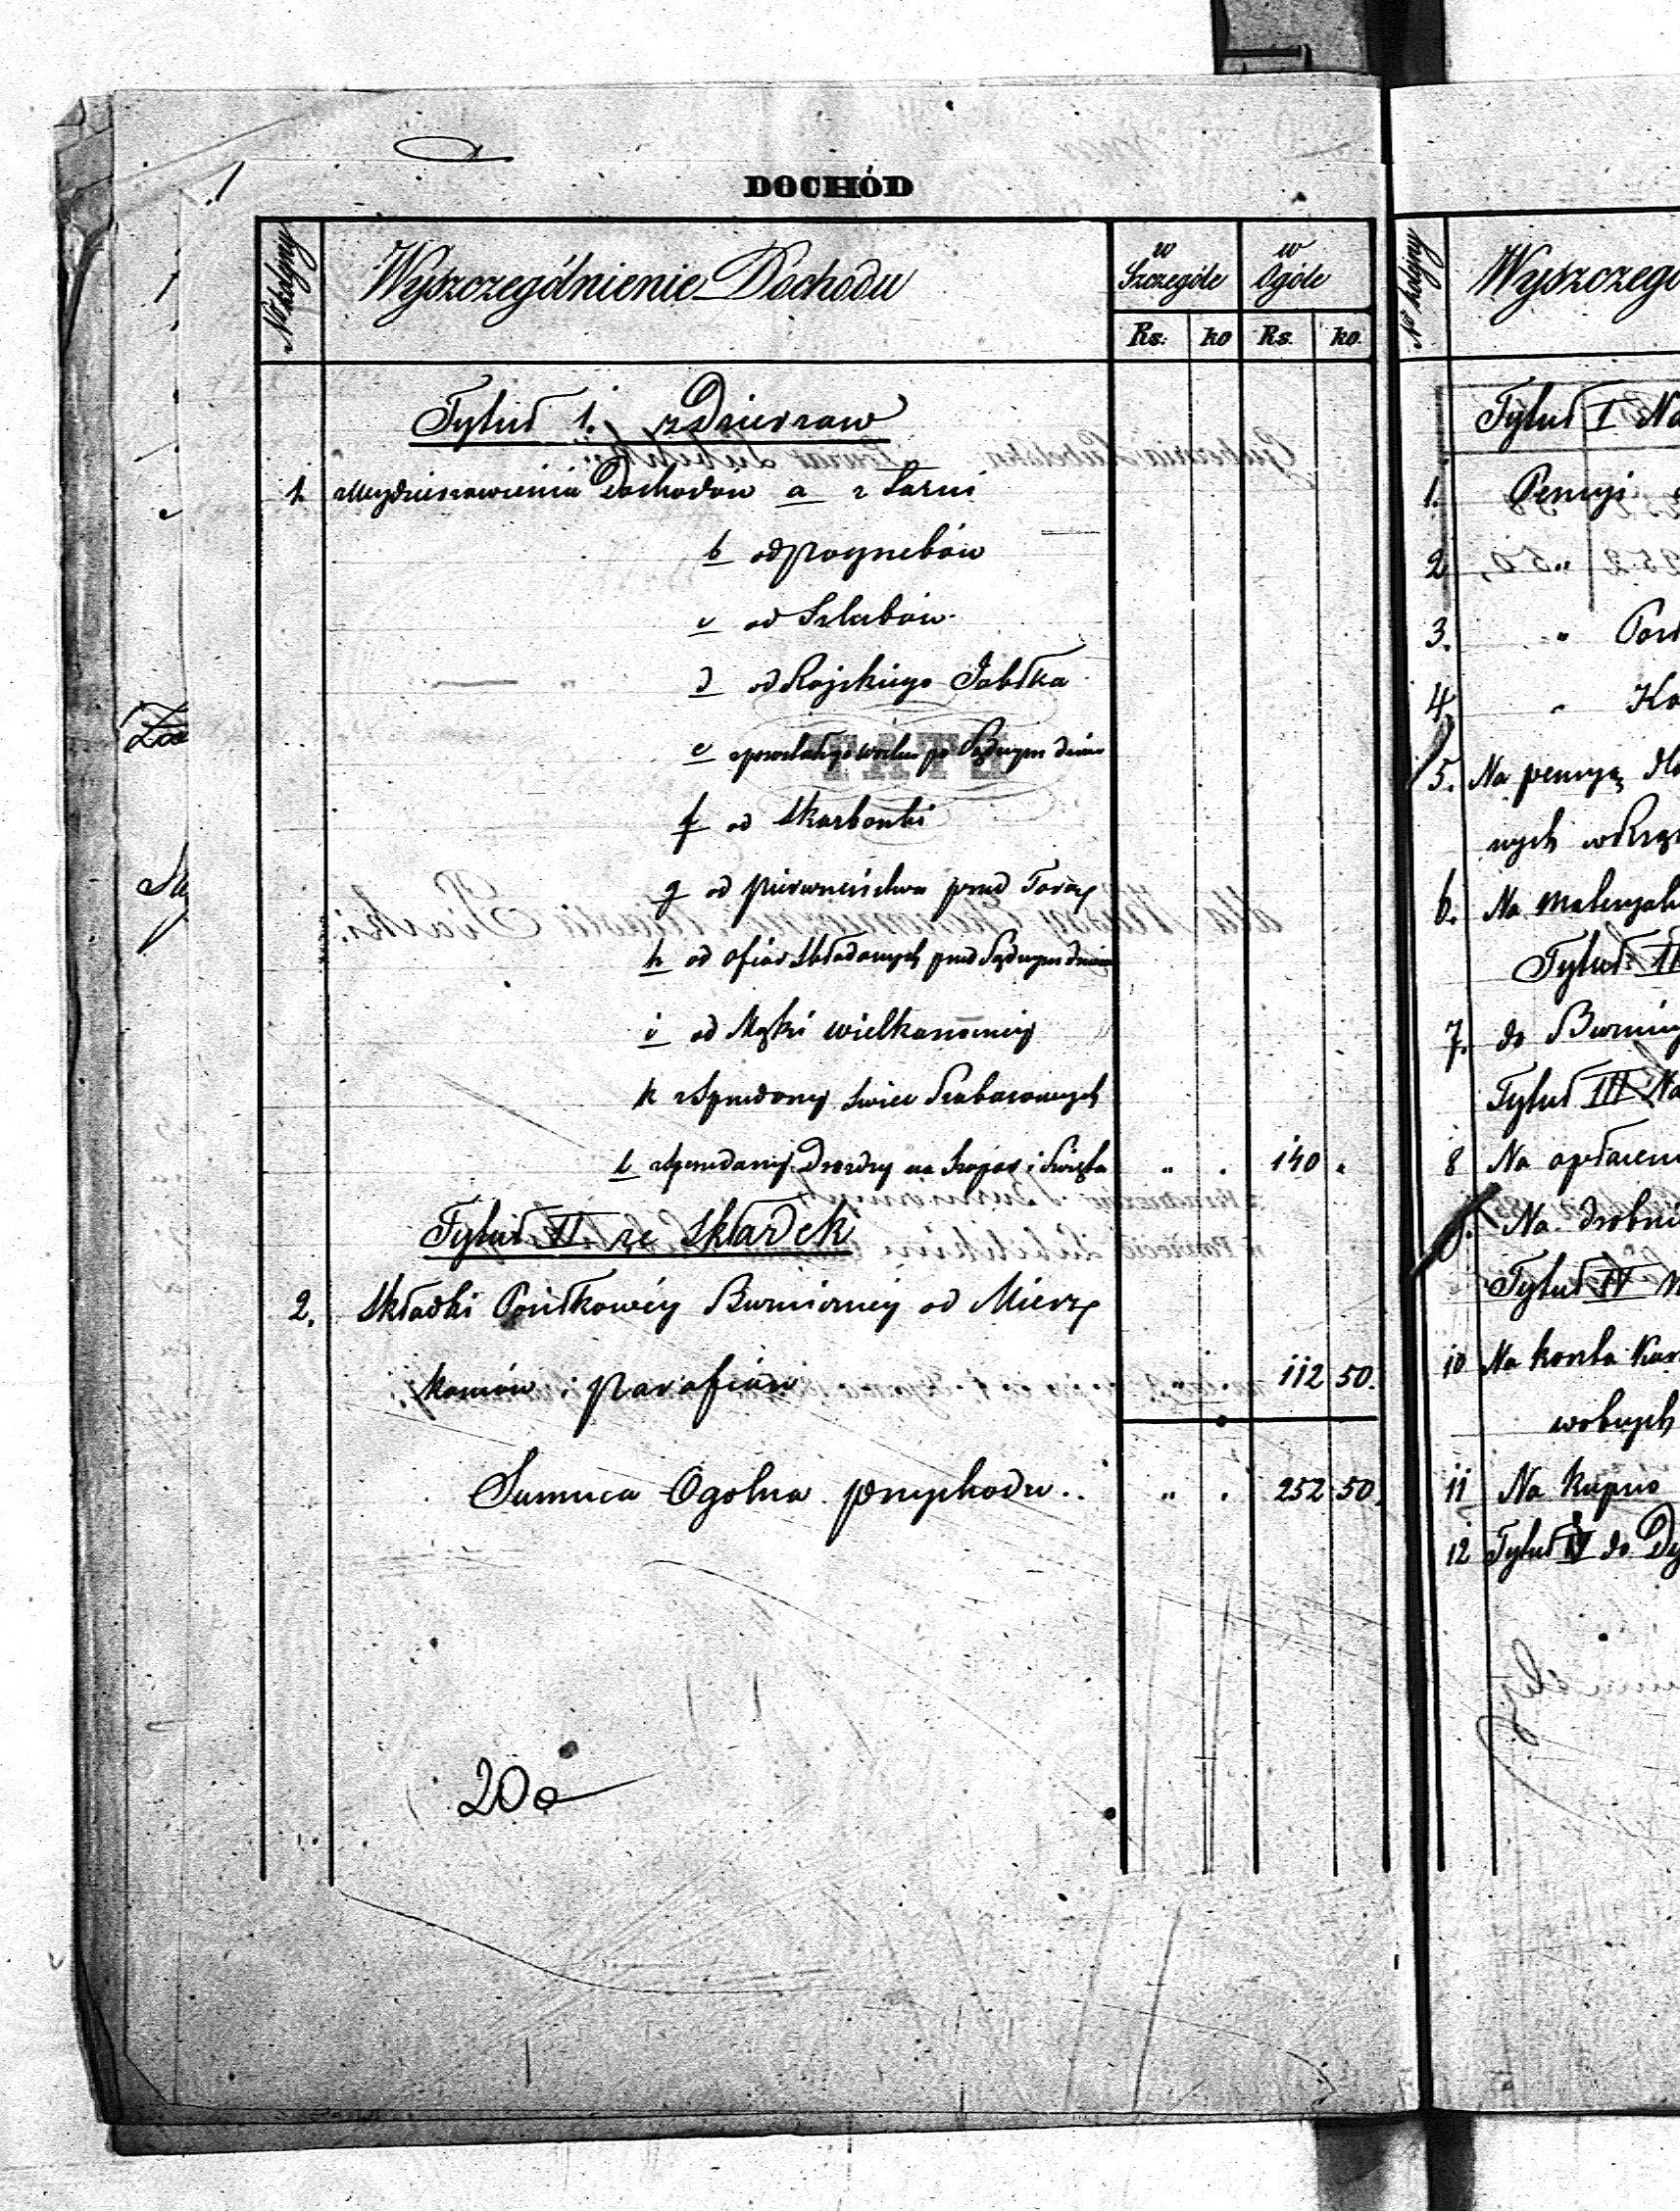 DOCHÓD
No kolejny
Wyszczególnienie Dochodu
w Szczególe
w Ogóle
Rs. ko Rs. ko.
Tytuł 1. z Dzierzaw
1. z Wydzierzawienia Dochodow a z Łazni
b od pogrzebów
c od Szlubów
d od Rajskiego Jabłka
e pozostałego wosku po Sądnym dniu
f od Skarbonki
g od pierwszeństwa przed Torą
h od ofiar składanych przed Sądnym dniem
i od Mąki wielkanocnej
k z Sprzedarzy Świec Szabasowych
l z Sprzedarzy Drozdzy na Szabas i Święta " . 140 .
Tytuł II ze Składek
2. Składki Posiłkowéj Bużnicznéj od Miesz
kańców i parafian " . 112 50.
Summa Ogolna przychodu .. " . 252 50.
20a
No kolejny
Wyszczegó
Tytuł I Na
1. Pensyi
2
3. "
4 "
5. Na pensyą dla
nych w
6. Na materyał
Tytuł II
7. do Bużnicy
Tytuł III Na
8 Na opłacen
9. Na drobn
Tytuł IV
10 Na koszta
11 Na kupno
12 Tytuł V do